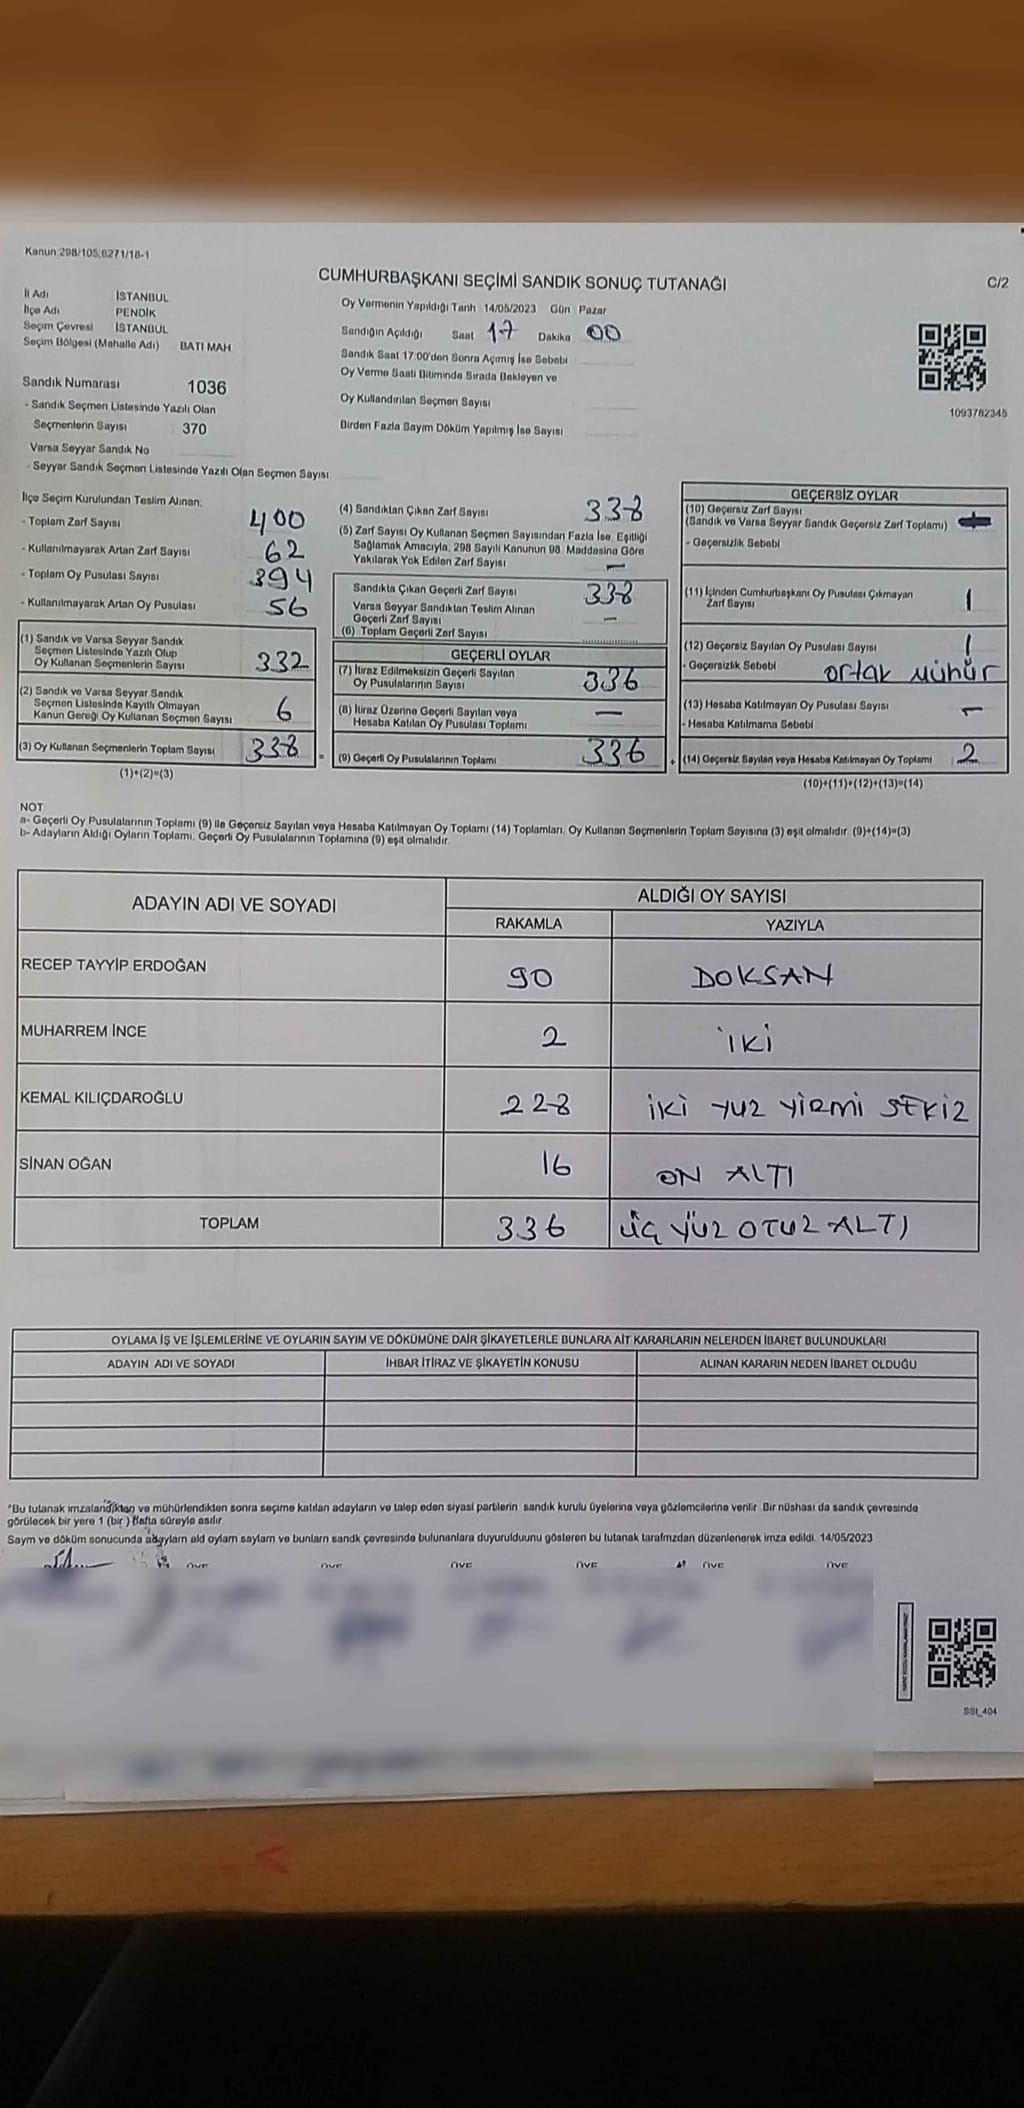 Kanun 298/105,6271/18-1
CUMHURBAŞKANI SEÇİMİ SANDIK SONUÇ TUTANAĞI
C/2
İl Adı İSTANBUL
İlçe Adı PENDİK
Seçim Çevresi İSTANBUL
Seçim Bölgesi (Mahalle Adı) BATI MAH
Sandık Numarası 1036
- Sandık Seçmen Listesinde Yazılı Olan
Seçmenlerin Sayısı 370
Varsa Seyyar Sandık No
- Seyyar Sandık Seçmen Listesinde Yazılı Olan Seçmen Sayısı
Oy Vermenin Yapıldığı Tarih 14/05/2023 Gün Pazar
Sandığın Açıldığı Saat 17 Dakika 00
Sandık Saat 17:00'den Sonra Açımış İse Sebebi
Oy Verme Saati Bitiminde Sırada Bekleyen ve
Oy Kullandırılan Seçmen Sayısı
Birden Fazla Sayım Döküm Yapılmış İse Sayısı
1093782345
İlçe Seçim Kurulundan Teslim Alınan;
- Toplam Zarf Sayısı 400
- Kullanılmayarak Artan Zarf Sayısı 62
- Toplam Oy Pusulası Sayısı 394
- Kullanılmayarak Artan Oy Pusulası 56
(1) Sandık ve Varsa Seyyar Sandık
Seçmen Listesinde Yazılı Olup
Oy Kullanan Seçmenlerin Sayısı 332
(2) Sandık ve Varsa Seyyar Sandık
Seçmen Listesinde Kayıtlı Olmayan
Kanun Gereği Oy Kullanan Seçmen Sayısı 6
(3) Oy Kullanan Seçmenlerin Toplam Sayısı 338 =
(1)+(2)=(3)
(4) Sandıktan Çıkan Zarf Sayısı 338
(5) Zarf Sayısı Oy Kullanan Seçmen Sayısından Fazla İse, Eşitliği
Sağlamak Amacıyla, 298 Sayılı Kanunun 98. Maddesine Göre
Yakılarak Yok Edilen Zarf Sayısı —
Sandıkta Çıkan Geçerli Zarf Sayısı 338
Varsa Seyyar Sandıktan Teslim Alınan
Geçerli Zarf Sayısı —
(6) Toplam Geçerli Zarf Sayısı
GEÇERLİ OYLAR
(7) İtiraz Edilmeksizin Geçerli Sayılan
Oy Pusulalarının Sayısı 336
(8) İtiraz Üzerine Geçerli Sayılan veya
Hesaba Katılan Oy Pusulası Toplamı —
(9) Geçerli Oy Pusulalarının Toplamı 336 +
GEÇERSİZ OYLAR
(10) Geçersiz Zarf Sayısı
(Sandık ve Varsa Seyyar Sandık Geçersiz Zarf Toplamı)
- Geçersizlik Sebebi
(11) İçinden Cumhurbaşkanı Oy Pusulası Çıkmayan
Zarf Sayısı 1
(12) Geçersiz Sayılan Oy Pusulası Sayısı 1
- Geçersizlik Sebebi ortak mühür
(13) Hesaba Katılmayan Oy Pusulası Sayısı —
- Hesaba Katılmama Sebebi
(14) Geçersiz Sayılan veya Hesaba Katılmayan Oy Toplamı 2
(10)+(11)+(12)+(13)=(14)
NOT
a- Geçerli Oy Pusulalarının Toplamı (9) ile Geçersiz Sayılan veya Hesaba Katılmayan Oy Toplamı (14) Toplamları, Oy Kullanan Seçmenlerin Toplam Sayısına (3) eşit olmalıdır. (9)+(14)=(3)
b- Adayların Aldığı Oyların Toplamı, Geçerli Oy Pusulalarının Toplamına (9) eşit olmalıdır.
ADAYIN ADI VE SOYADI
ALDIĞI OY SAYISI
RAKAMLA YAZIYLA
RECEP TAYYİP ERDOĞAN 90 DOKSAN
MUHARREM İNCE 2 İKİ
KEMAL KILIÇDAROĞLU 228 İKİ YUZ YİRMİ SEKİZ
SİNAN OĞAN 16 ON ALTI
TOPLAM 336 ÜÇ YÜZ OTUZ ALTI
OYLAMA İŞ VE İŞLEMLERİNE VE OYLARIN SAYIM VE DÖKÜMÜNE DAİR ŞİKAYETLERLE BUNLARA AİT KARARLARIN NELERDEN İBARET BULUNDUKLARI
ADAYIN ADI VE SOYADI İHBAR İTİRAZ VE ŞİKAYETİN KONUSU ALINAN KARARIN NEDEN İBARET OLDUĞU
*Bu tutanak imzalandıktan ve mühürlendikten sonra seçime katılan adayların ve talep eden siyasi partilerin sandık kurulu üyelerine veya gözlemcilerine verilir. Bir nüshası da sandık çevresinde
görülecek bir yere 1 (bir) hafta süreyle asılır.
Sayım ve döküm sonucunda adayların ald oylarn sayların ve bunların sandk çevresinde bulunanlara duyurulduunu gösteren bu tutanak tarafmızdan düzenlenerek imza edildi. 14/05/2023
ÜYE ÜYE ÜYE ÜYE ÜYE ÜYE
SSI_404